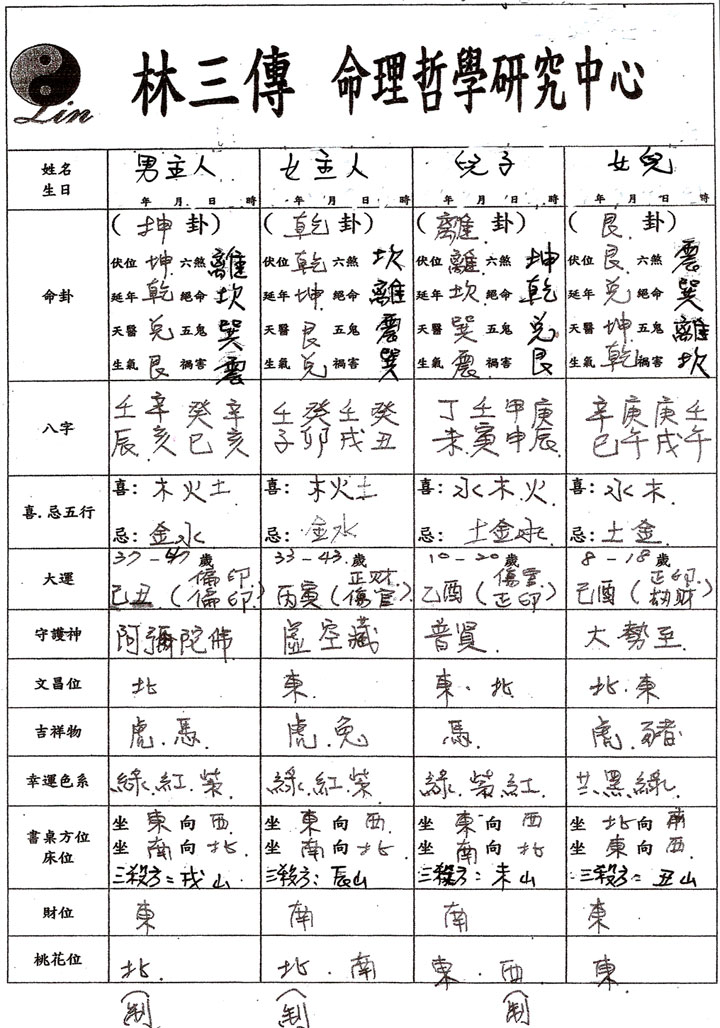 Lin
林三傳 命理哲學研究中心
姓名 男主人 女主人 兒子 女兒
生日 年 月 日 時 年 月 日 時 年 月 日 時 年 月 日 時
命卦
(坤卦) (乾卦) (離卦) (艮卦)
伏位 坤 六煞 離 伏位 乾 六煞 坎 伏位 離 六煞 坤 伏位 艮 六煞 震
延年 乾 絕命 坎 延年 坤 絕命 離 延年 坎 絕命 乾 延年 兌 絕命 巽
天醫 兌 五鬼 巽 天醫 艮 五鬼 震 天醫 巽 五鬼 兌 天醫 坤 五鬼 離
生氣 艮 禍害 震 生氣 兌 禍害 巽 生氣 震 禍害 艮 生氣 乾 禍害 坎
八字
壬辛癸辛 壬癸壬癸 丁壬甲庚 辛庚庚壬
辰亥巳亥 子卯戌丑 未寅申辰 巳午戌午
喜.忌五行
喜: 木火土 喜: 木火土 喜: 水木火 喜: 水木
忌: 金水 忌: 金水 忌: 土金水 忌: 土金
大運
37-47歲 33-43歲 10-20歲 8-18歲
己丑(偏印 偏印) 丙寅(正財 傷官) 乙酉(傷官 正印) 己酉(正印 劫財)
守護神 阿彌陀佛 虛空藏 普賢 大勢至
文昌位 北 東 東.北 北.東
吉祥物 虎.馬 虎.兔 馬 虎.豬
幸運色系 綠.紅.紫 綠.紅.紫 綠.紫.紅 黑.綠
書桌方位 坐東向西 坐東向西 坐東向西 坐北向南
床位 坐南向北 坐南向北 坐南向北 坐東向西
三殺方:戌山 三殺方:辰山 三殺方:未山 三殺方:丑山
財位 東 南 南 東
桃花位 北 北.南 東.西 東
(制) (制) (制)